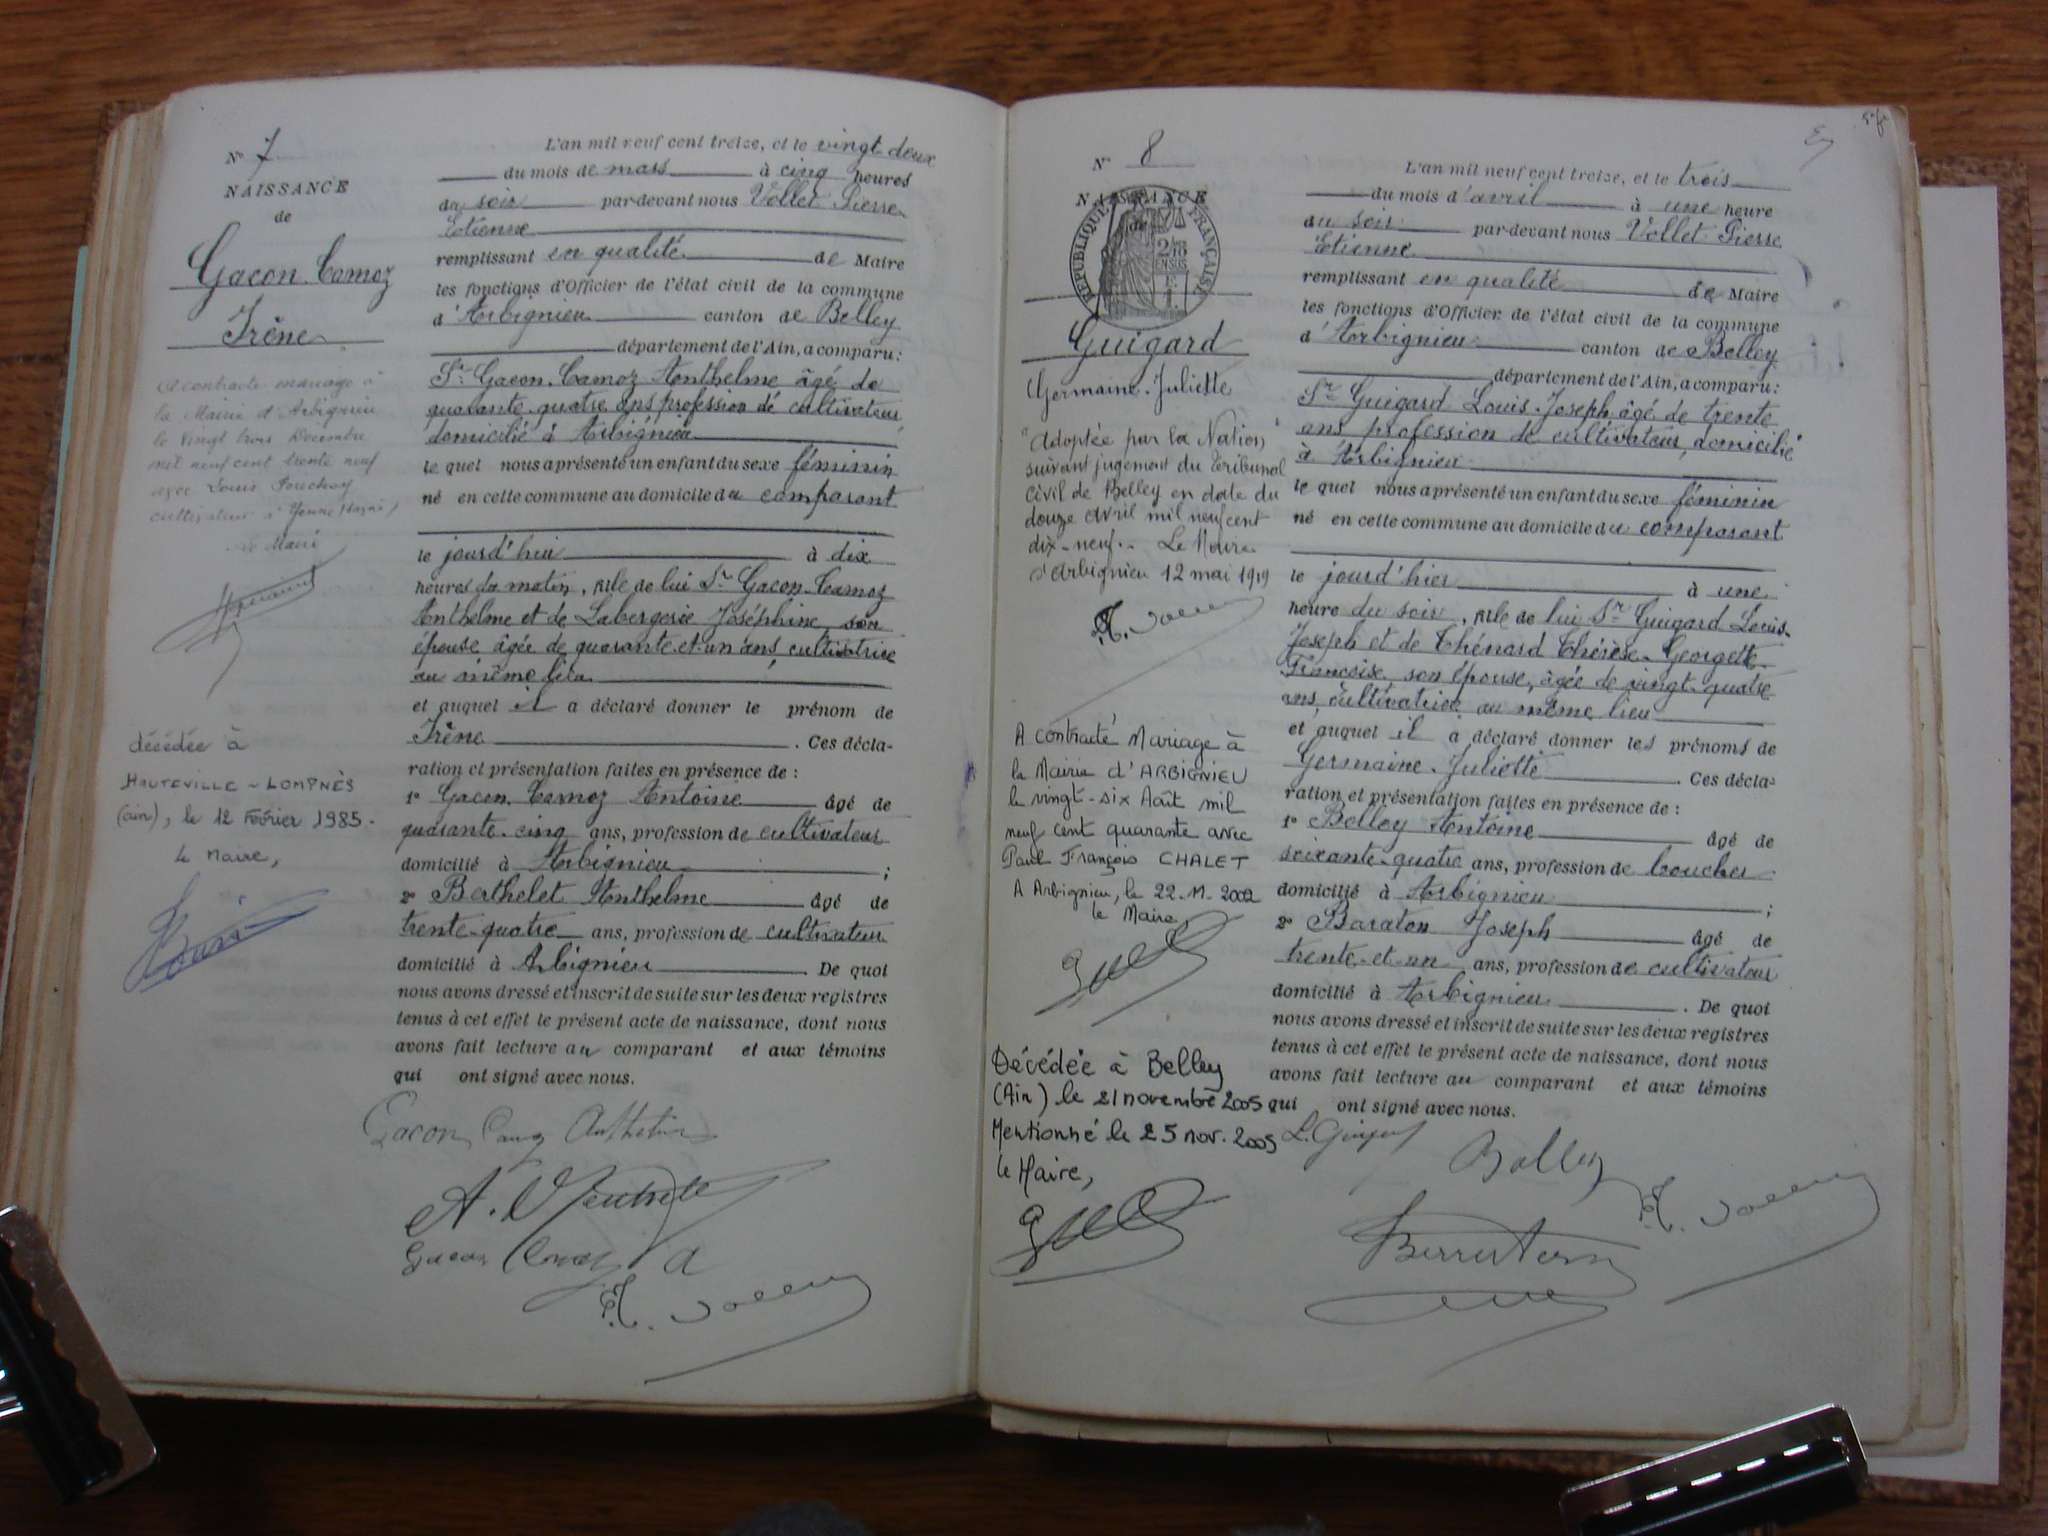 N° 7
NAISSANCE
de
Gacon-Camoz
Irène
A contracté mariage à
la Mairie d'Arbignieu
le vingt trois Décembre
mil neuf cent trente neuf
avec Louis
cultivateur à Yenne
Le Maire
décédée à
HAUTEVILLE-LOMPNÈS
(ain), le 12 Février 1985.
le Maire,
L'an mil neuf cent treize, et le vingt deux
du mois de mars à cinq heures
du soir par-devant nous Vollet Pierre
Etienne
remplissant en qualité de Maire
les fonctions d'Officier de l'état civil de la commune
d'Arbignieu canton de Belley
département de l'Ain, a comparu:
Sr Gacon-Camoz Anthelme âgé de
quarante-quatre ans profession de cultivateur
domicilié à Arbignieu
lequel nous a présenté un enfant du sexe féminin
né en cette commune au domicile du comparant
le jourd'hui à dix
heures du matin, fille de lui Sr Gacon-Camoz
Anthelme et de Labergerie Joséphine son
épouse âgée de quarante-et-un ans cultivatrice
au même lieu
et auquel il a déclaré donner le prénom de
Irène. Ces décla-
ration et présentation faites en présence de :
1° Gacon-Camoz Antoine âgé de
quarante-cinq ans, profession de cultivateur
domicilié à Arbignieu ;
2° Berthelet Anthelme âgé de
trente-quatre ans, profession de cultivateur
domicilié à Arbignieu. De quoi
nous avons dressé et inscrit de suite sur les deux registres
tenus à cet effet le présent acte de naissance, dont nous
avons fait lecture au comparant et aux témoins
qui ont signé avec nous.
Gacon Camoz Anthelme
Gacon Camoz A
N° 8
NAISSANCE
de
RÉPUBLIQUE FRANÇAISE
Guigard
Germaine-Juliette
"Adoptée par la Nation"
suivant jugement du Tribunal
Civil de Belley en date du
douze avril mil neuf cent
dix-neuf.- Le Maire
d'Arbignieu 12 mai 1919
A contracté Mariage à
la Mairie d'ARBIGNIEU
le vingt-six Août mil
neuf cent quarante avec
Paul François CHALET
A Arbignieu, le 22.M.2002
le Maire,
Décédée à Belley
(Ain) le 21 novembre 2005
Mentionné le 25 nov. 2005
le Maire,
L'an mil neuf cent treize, et le trois
du mois d'avril à une heure
du soir par-devant nous Vollet Pierre
Etienne
remplissant en qualité de Maire
les fonctions d'Officier de l'état civil de la commune
d'Arbignieu canton de Belley
département de l'Ain, a comparu:
Sr Guigard Louis-Joseph âgé de trente
ans profession de cultivateur, domicilié
à Arbignieu
lequel nous a présenté un enfant du sexe féminin
né en cette commune au domicile du comparant
le jourd'hier à une
heure du soir, fille de lui Sr Guigard Louis-
Joseph et de Thénard Thérèse-Georgette-
Françoise, son épouse, âgée de vingt-quatre
ans, cultivatrice au même lieu
et auquel il a déclaré donner les prénoms de
Germaine-Juliette. Ces décla-
ration et présentation faites en présence de :
1° Belley Antoine âgé de
soixante-quatre ans, profession de boucher
domicilié à Arbignieu ;
2° Baraton Joseph âgé de
trente-et-un ans, profession de cultivateur
domicilié à Arbignieu. De quoi
nous avons dressé et inscrit de suite sur les deux registres
tenus à cet effet le présent acte de naissance, dont nous
avons fait lecture au comparant et aux témoins
qui ont signé avec nous.
L. Guigard
Belley